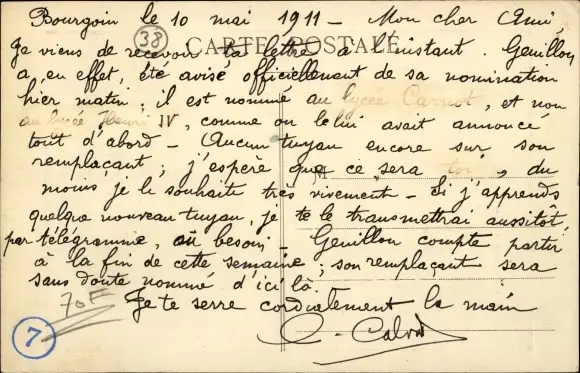 Bourgoin le 10 mai 1911 - Mon cher Ami,
38
CARTE POSTALE
Je viens de recevoir ta lettre à l'instant. Genillon
a, en effet, été avisé officiellement de sa nomination
hier matin ; il est nommé au lycée Carnot, et non
au lycée Henri IV, comme on le lui avait annoncé
tout d'abord - Aucun tuyau encore sur son
remplaçant ; j'espère que ce sera toi, du
moins je le souhaite très vivement - Si j'apprends
quelque nouveau tuyau, je te le transmettrai aussitôt,
par télégramme, au besoin - Genillon compte partir
à la fin de cette semaine ; son remplaçant sera
sans doute nommé d'ici là.
70F
Je te serre cordialement la main
7